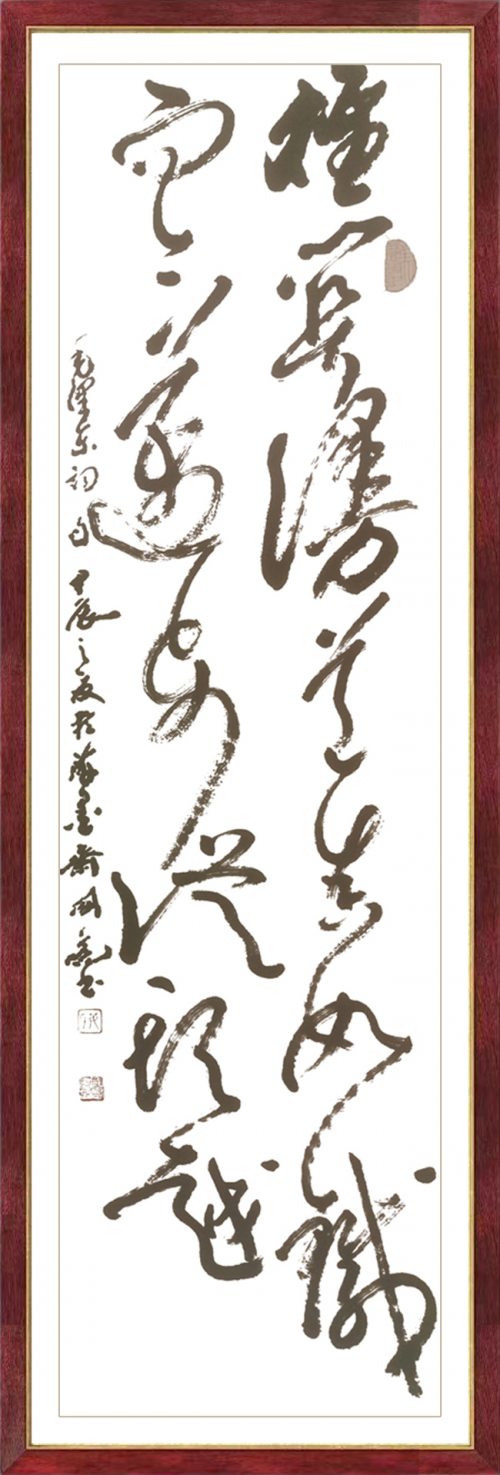 雄关漫道真如铁
而今迈步从头越
毛泽东词句 甲辰之夏于海墨斋